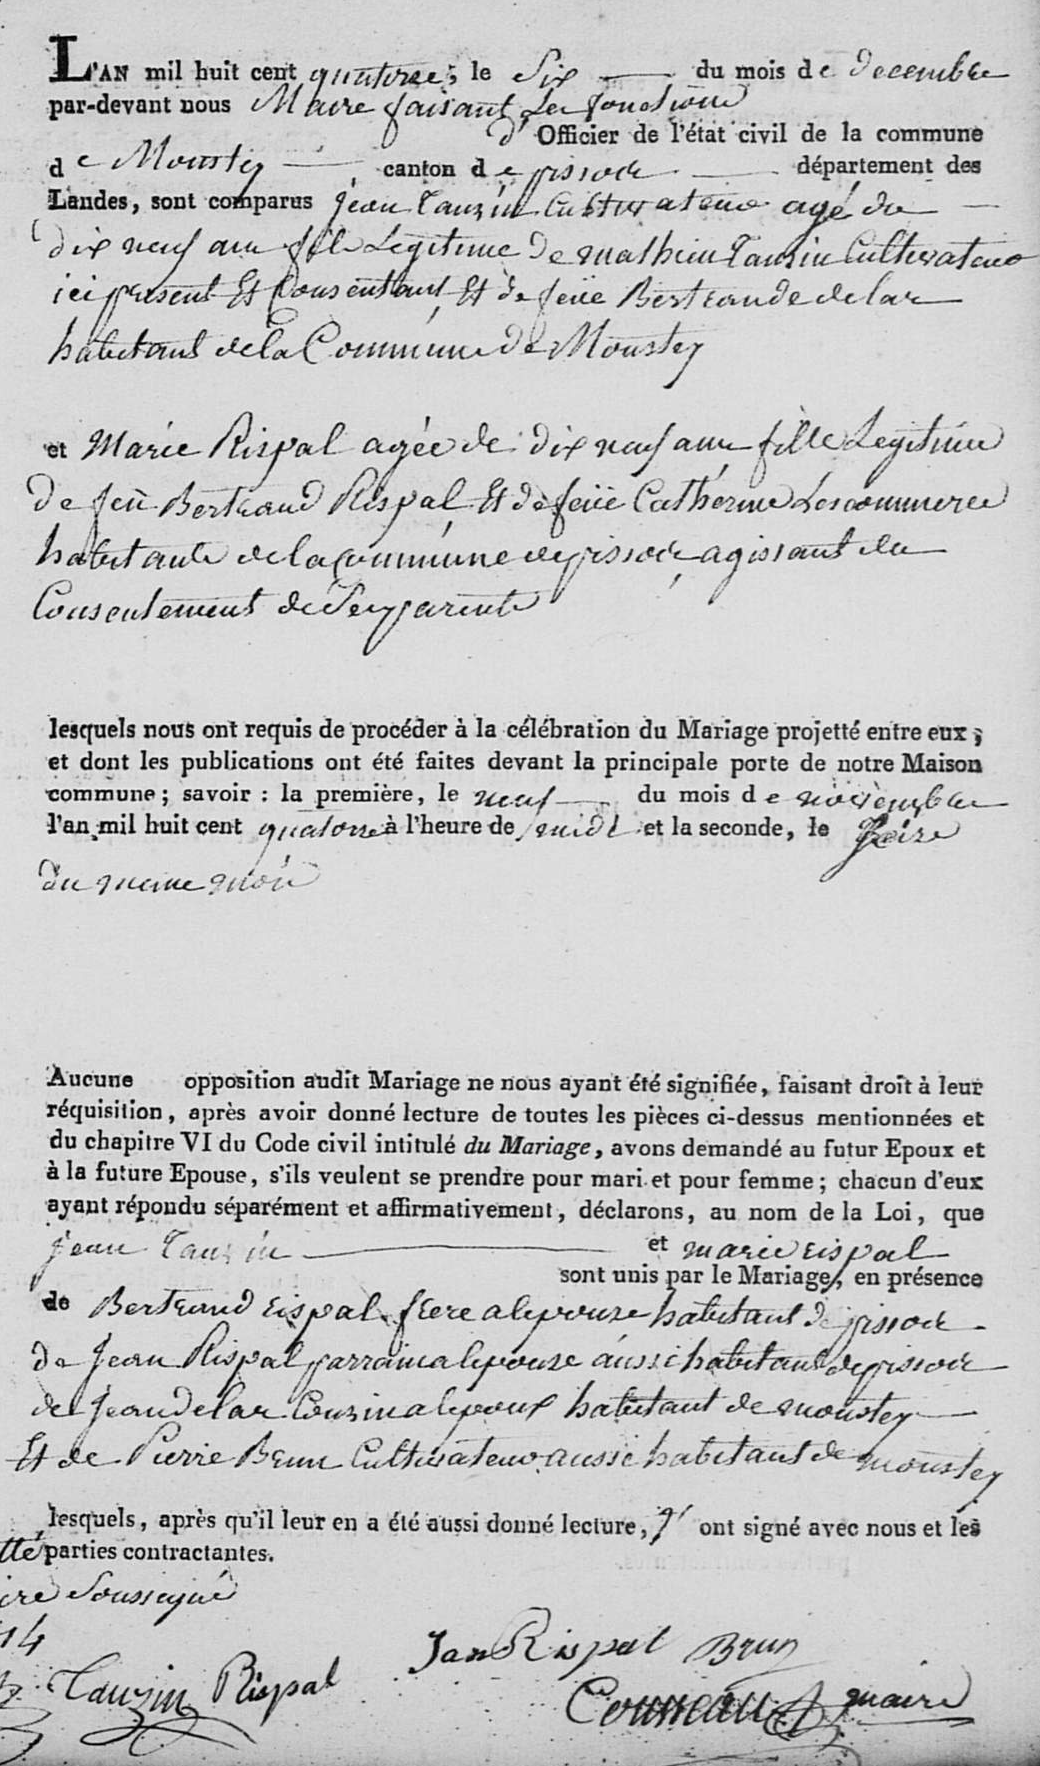 L'AN mil huit cent quatorze, le Six du mois de decembre
par-devant nous Maire faisant les fonctions
d'Officier de l'état civil de la commune
de Moustey canton de pissos département des
Landes, sont comparus jean Tauzin Cultivateur agé de
dix neuf ans fils Legitime de mathieu Tauzin Cultivateur
ici present Et Consentant Et de feüe Bertrande delar
habitant de la Commune de Moustey
et Marie Rispal agée de dix neuf ans fille Legitime
de feü Bertrand Rispal Et de feüe Catherine
habitante de la commune de pissos agissant du
Consentement de Ses parents
lesquels nous ont requis de procéder à la célébration du Mariage projetté entre eux;
et dont les publications ont été faites devant la principale porte de notre Maison
commune; savoir: la première, le neuf du mois de novembre
l'an mil huit cent quatorze à l'heure de midi et la seconde, le Treize
du meme mois
Aucune opposition audit Mariage ne nous ayant été signifiée, faisant droit à leur
réquisition, après avoir donné lecture de toutes les pièces ci-dessus mentionnées et
du chapitre VI du Code civil intitulé du Mariage, avons demandé au futur Epoux et
à la future Epouse, s'ils veulent se prendre pour mari et pour femme; chacun d'eux
ayant répondu séparément et affirmativement, déclarons, au nom de la Loi, que
jean Tauzin et marie rispal
sont unis par le Mariage, en présence
de Bertrand rispal frere a lepouse habitant de pissos
de Jean Rispal parrain a lepouse aussi habitant de pissos
de Jean delar Couzin a lepoux habitant de moustey
Et de Pierre Brun Cultivateur aussi habitant de moustey
lesquels, après qu'il leur en a été aussi donné lecture, ont signé avec nous et les
tté parties contractantes.
ire Soussigné
14
Jan Rispal Brun
Tauzin Rispal
maire